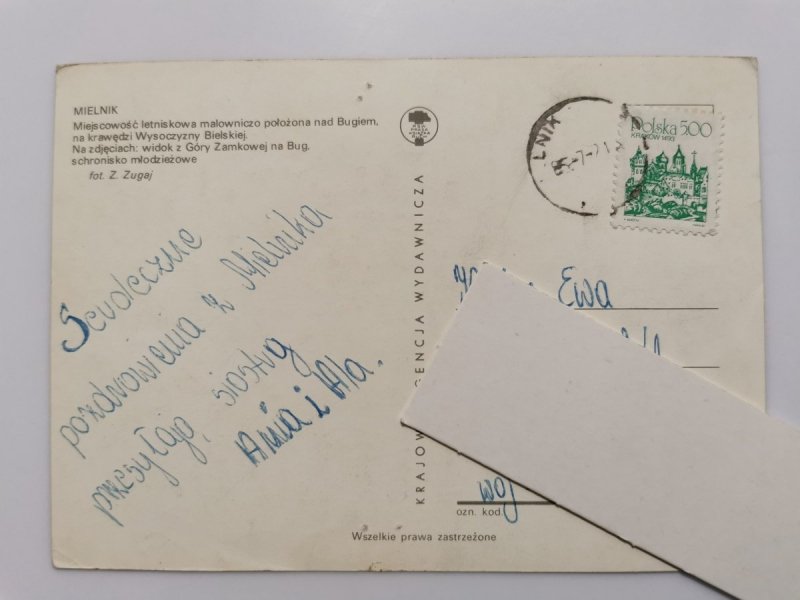 MIELNIK
Miejscowość letniskowa malowniczo położona nad Bugiem,
na krawędzi Wysoczyzny Bielskiej.
Na zdjęciach: widok z Góry Zamkowej na Bug,
schronisko młodzieżowe
fot. Z. Zugaj
Serdeczne
pozdrowienia z Mielnika
przesyłają siostry
Ania i Ala.
KRAJOW
GENCJA WYDAWNICZA
LNIK
Polska 5.00
KRAKÓW 1493
Ewa
woj
ozn. kod.
Wszelkie prawa zastrzeżone